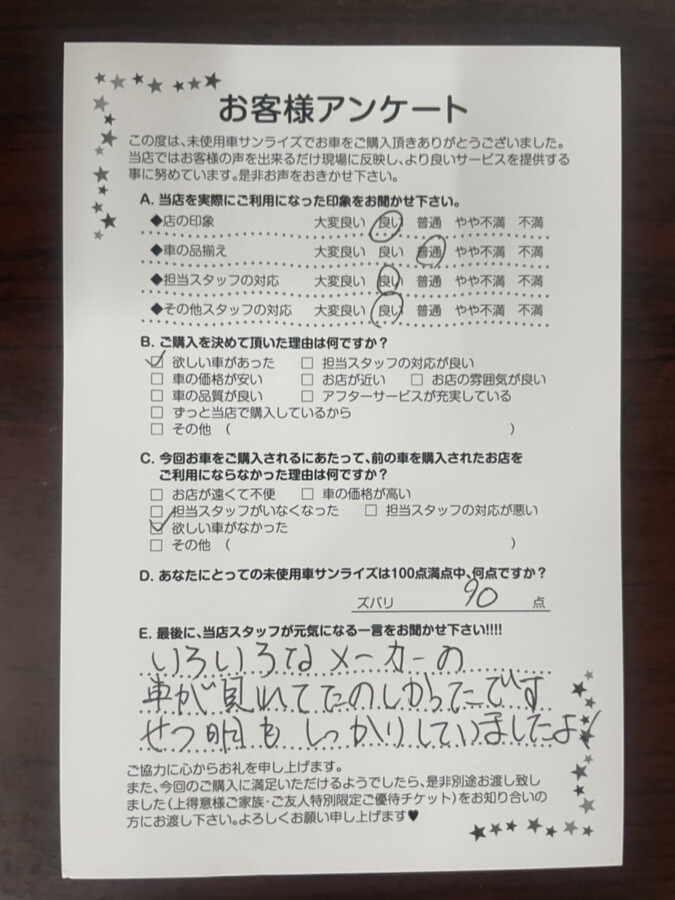 お客様アンケート
この度は、未使用車サンライズでお車をご購入頂きありがとうございました。
当店ではお客様の声を出来るだけ現場に反映し、より良いサービスを提供する
事に努めています。是非お声をおきかせ下さい。
A. 当店を実際にご利用になった印象をお聞かせ下さい。
◆店の印象 大変良い 良い 普通 やや不満 不満
◆車の品揃え 大変良い 良い 普通 やや不満 不満
◆担当スタッフの対応 大変良い 良い 普通 やや不満 不満
◆その他スタッフの対応 大変良い 良い 普通 やや不満 不満
B. ご購入を決めて頂いた理由は何ですか？
☑ 欲しい車があった □ 担当スタッフの対応が良い
□ 車の価格が安い □ お店が近い □ お店の雰囲気が良い
□ 車の品質が良い □ アフターサービスが充実している
□ ずっと当店で購入しているから
□ その他（ ）
C. 今回お車をご購入されるにあたって、前の車を購入されたお店を
ご利用にならなかった理由は何ですか？
□ お店が遠くて不便 □ 車の価格が高い
□ 担当スタッフがいなくなった □ 担当スタッフの対応が悪い
☑ 欲しい車がなかった
□ その他（ ）
D. あなたにとっての未使用車サンライズは100点満点中、何点ですか？
ズバリ 90 点
E. 最後に、当店スタッフが元気になる一言をお聞かせ下さい!!!!
いろいろなメーカーの
車が見れてたのしかったです
せつ明もしっかりしていましたよ！
ご協力に心からお礼を申し上げます。
また、今回のご購入に満足いただけるようでしたら、是非別途お渡し致し
ました（上得意様ご家族・ご友人特別限定ご優待チケット）をお知り合いの
方にお渡し下さい。よろしくお願い申し上げます♥